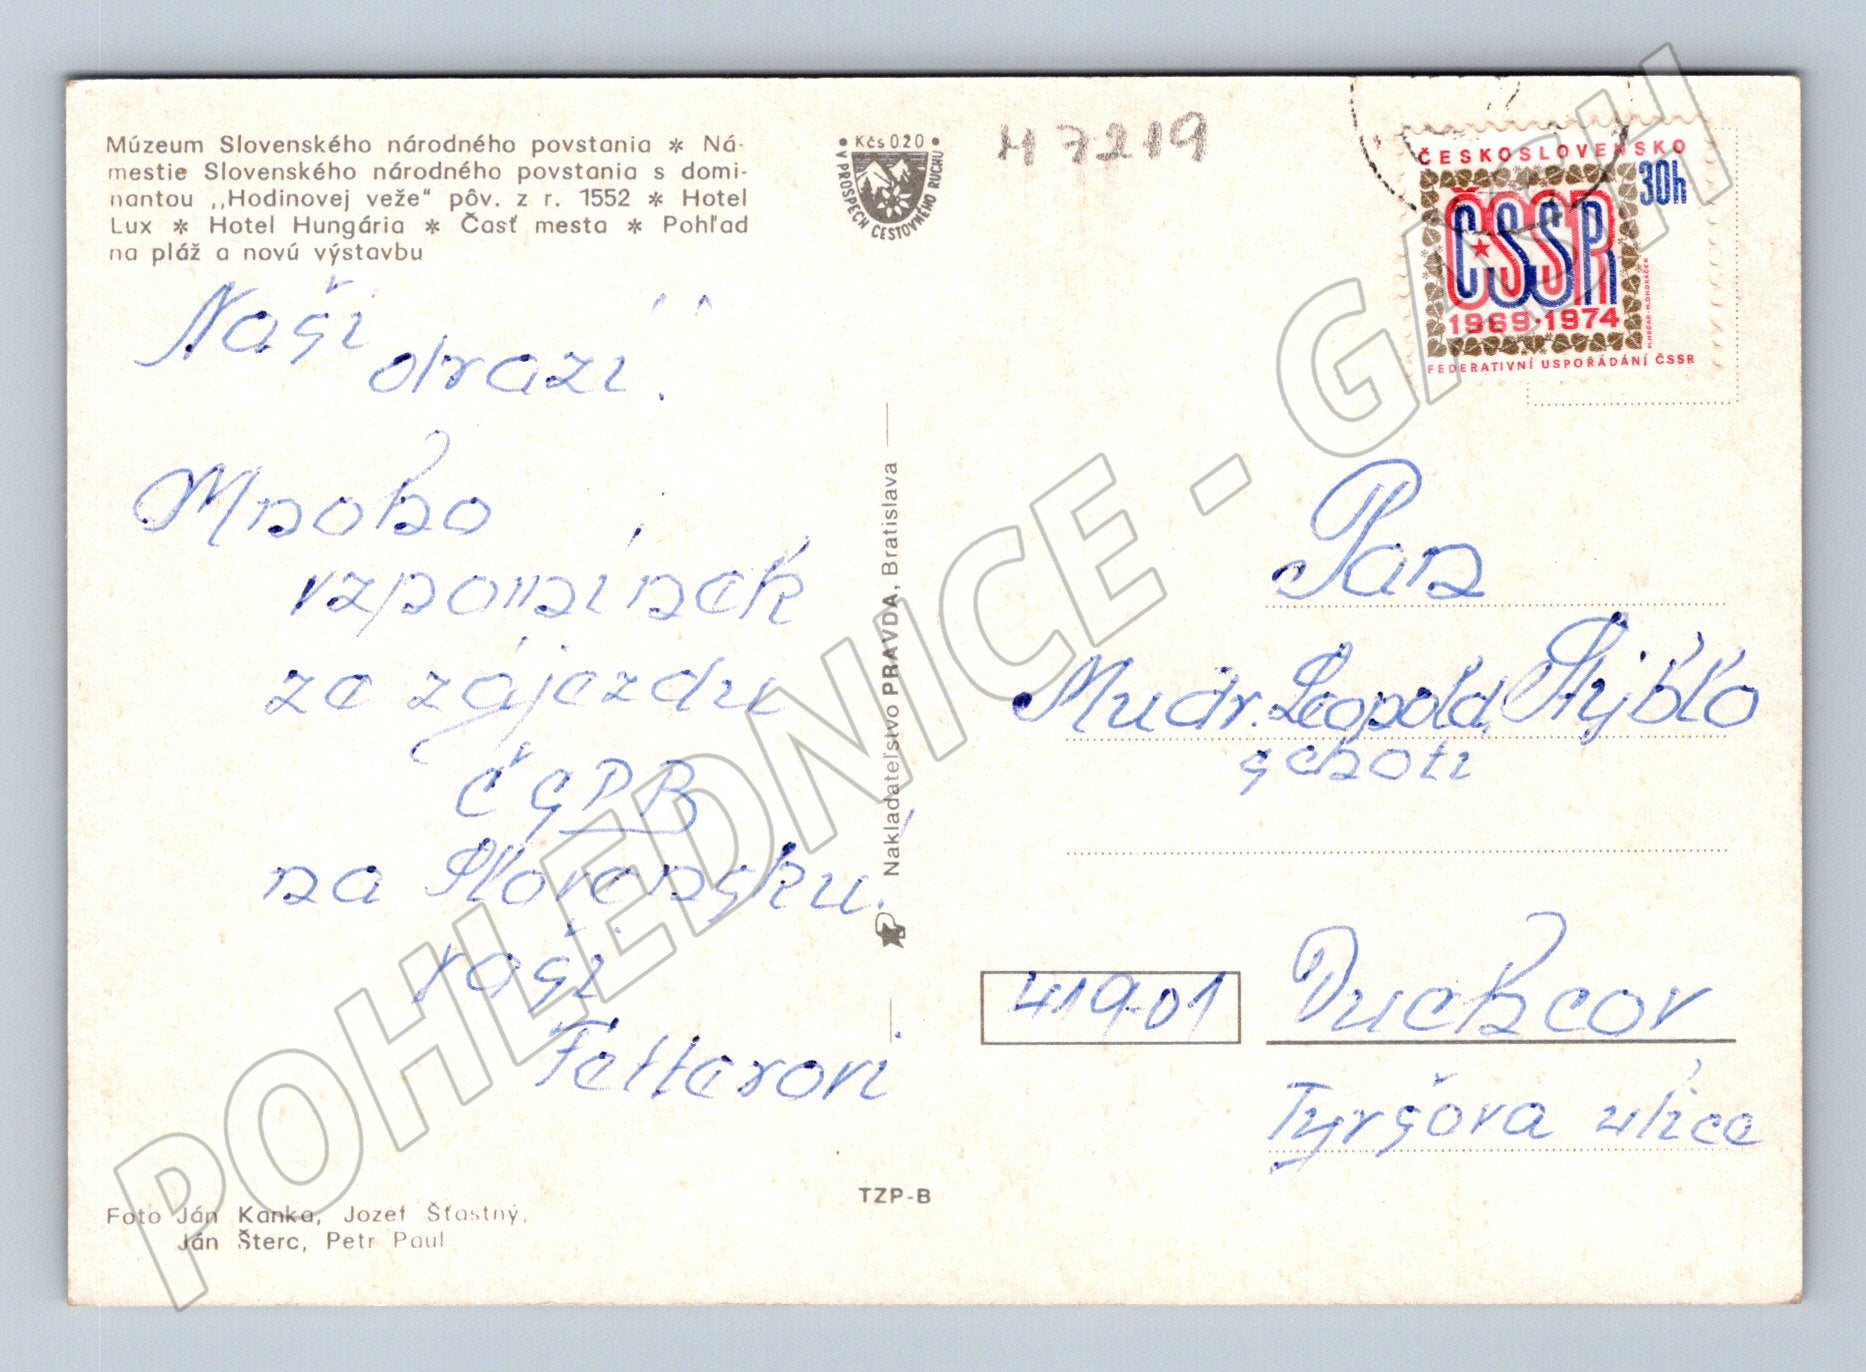 Múzeum Slovenského národného povstania * Ná-
mestie Slovenského národného povstania s domi-
nantou ,,Hodinovej veže" pôv. z r. 1552 * Hotel
Lux * Hotel Hungária * Časť mesta * Pohľad
na pláž a novú výstavbu
Naši
drazí!
Mnoho
vzpomínek
ze zájezdu
ČSPB
na Slovensku.
Vaši
Fetterovi
Foto Ján Kanka, Jozef Šťastný,
Ján Šterc, Petr Paul
• Kčs 020 •
V PROSPECH CESTOVNÉHO RUCHU
H 7219
Nakladateľstvo PRAVDA, Bratislava
TZP-B
ČESKOSLOVENSKO
30h
ČSSR
1969·1974
FEDERATIVNÍ USPOŘÁDÁNÍ ČSSR
Pan
Mudr. Leopold
s chotí
419 01
Duchcov
Tyršova ulice
POHLEDNICE - GASH